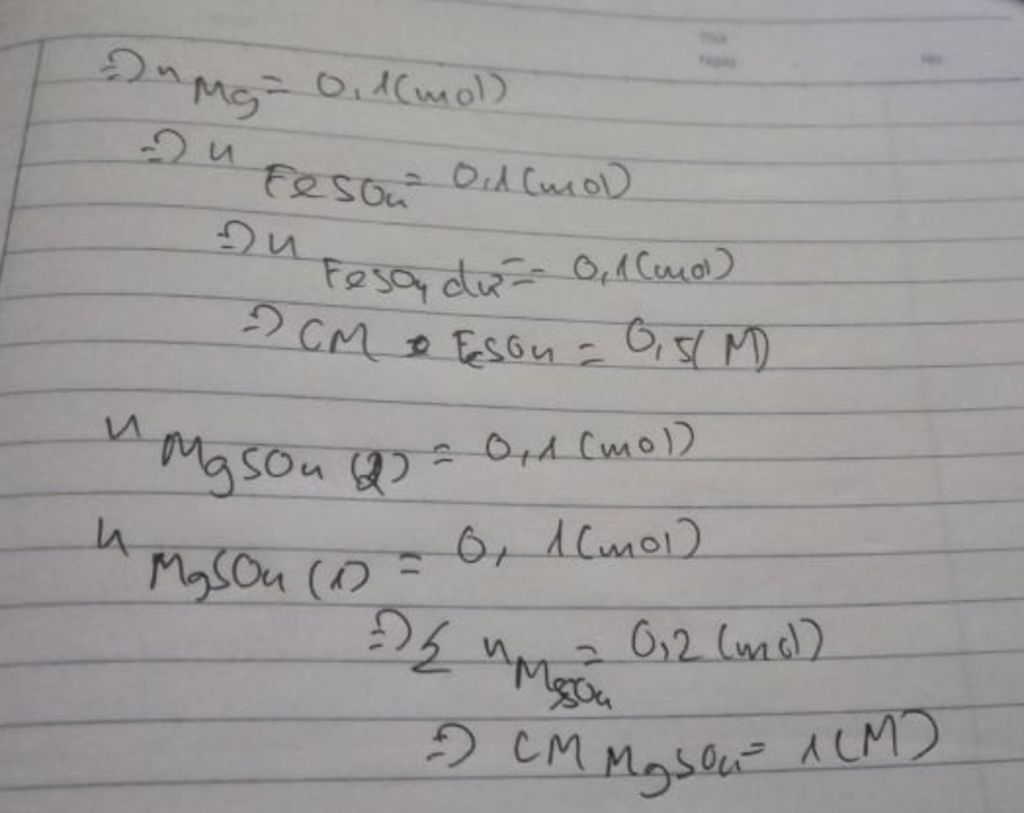 => n Mg = 0,1(mol)
=> n FeSO4 = 0,1(mol)
=> n FeSO4 dư = 0,1(mol)
=> CM FeSO4 = 0,5(M)
n MgSO4 (2) = 0,1(mol)
n MgSO4 (1) = 0,1(mol)
=> Σ n MgSO4 = 0,2(mol)
=> CM MgSO4 = 1(M)